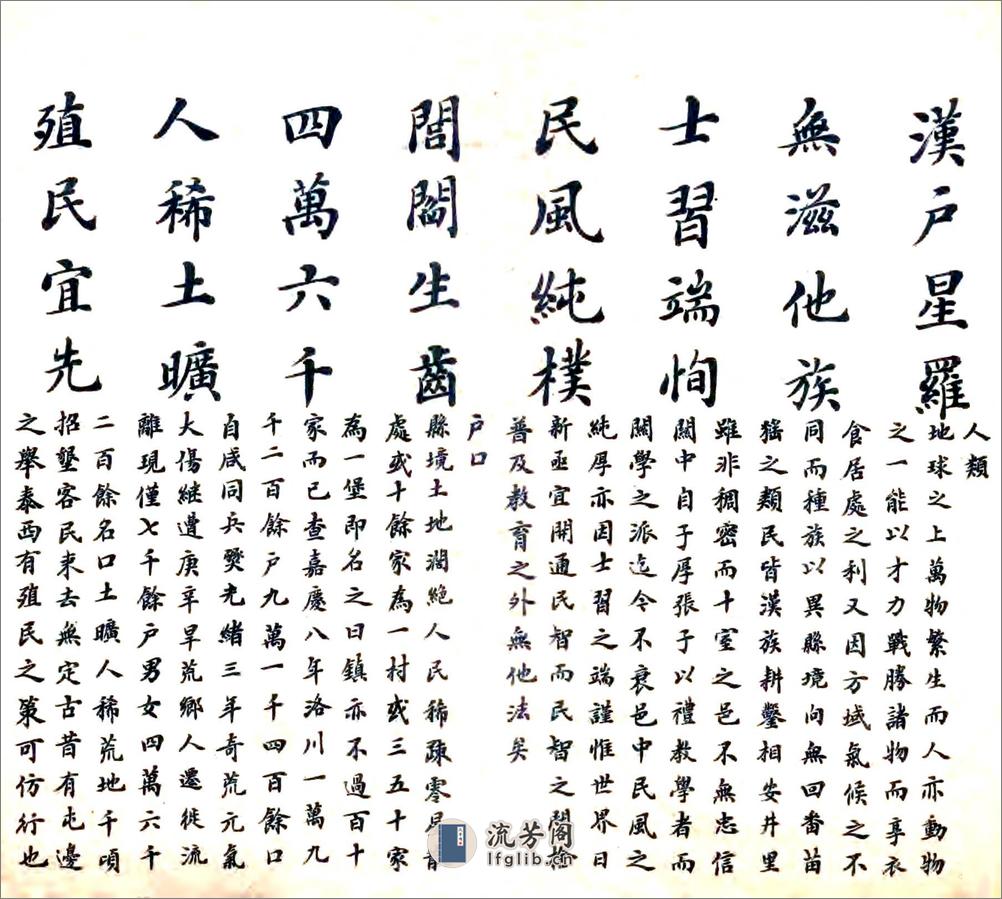 漢戶星羅
無滋他族
士習端恂
民風純樸
閭閻生齒
四萬六千
人稀土曠
殖民宜先
人類
地球之上萬物繁生而人亦動物
之一能以才力戰勝諸物而享衣
食居處之利又因方域氣候之不
同而種族以異縣境向無回番苗
猺之類民皆漢族耕鑿相安井里
雖非稠密而十室之邑不無忠信
關中自子厚張子以禮教學者而
關學之派迄今不衰邑中民風之
純厚亦因士習之端謹惟世界日
新亟宜開通民智而民智之開捨
普及教育之外無他法矣
戶口
縣境土地濶絕人民稀疎零星
處或十餘家為一村或三五十家
為一堡即名之曰鎮亦不過百十
家而已查嘉慶八年洛川一萬九
千二百餘戶九萬一千四百餘口
自咸同兵燹光緒三年奇荒元氣
大傷繼遭庚辛旱荒鄉人遷徙流
離現僅七千餘戶男女四萬六千
二百餘名口土曠人稀荒地千頃
招墾客民来去無定古昔有屯邊
之舉泰西有殖民之策可仿行也
流芳阁
lfglib.cn